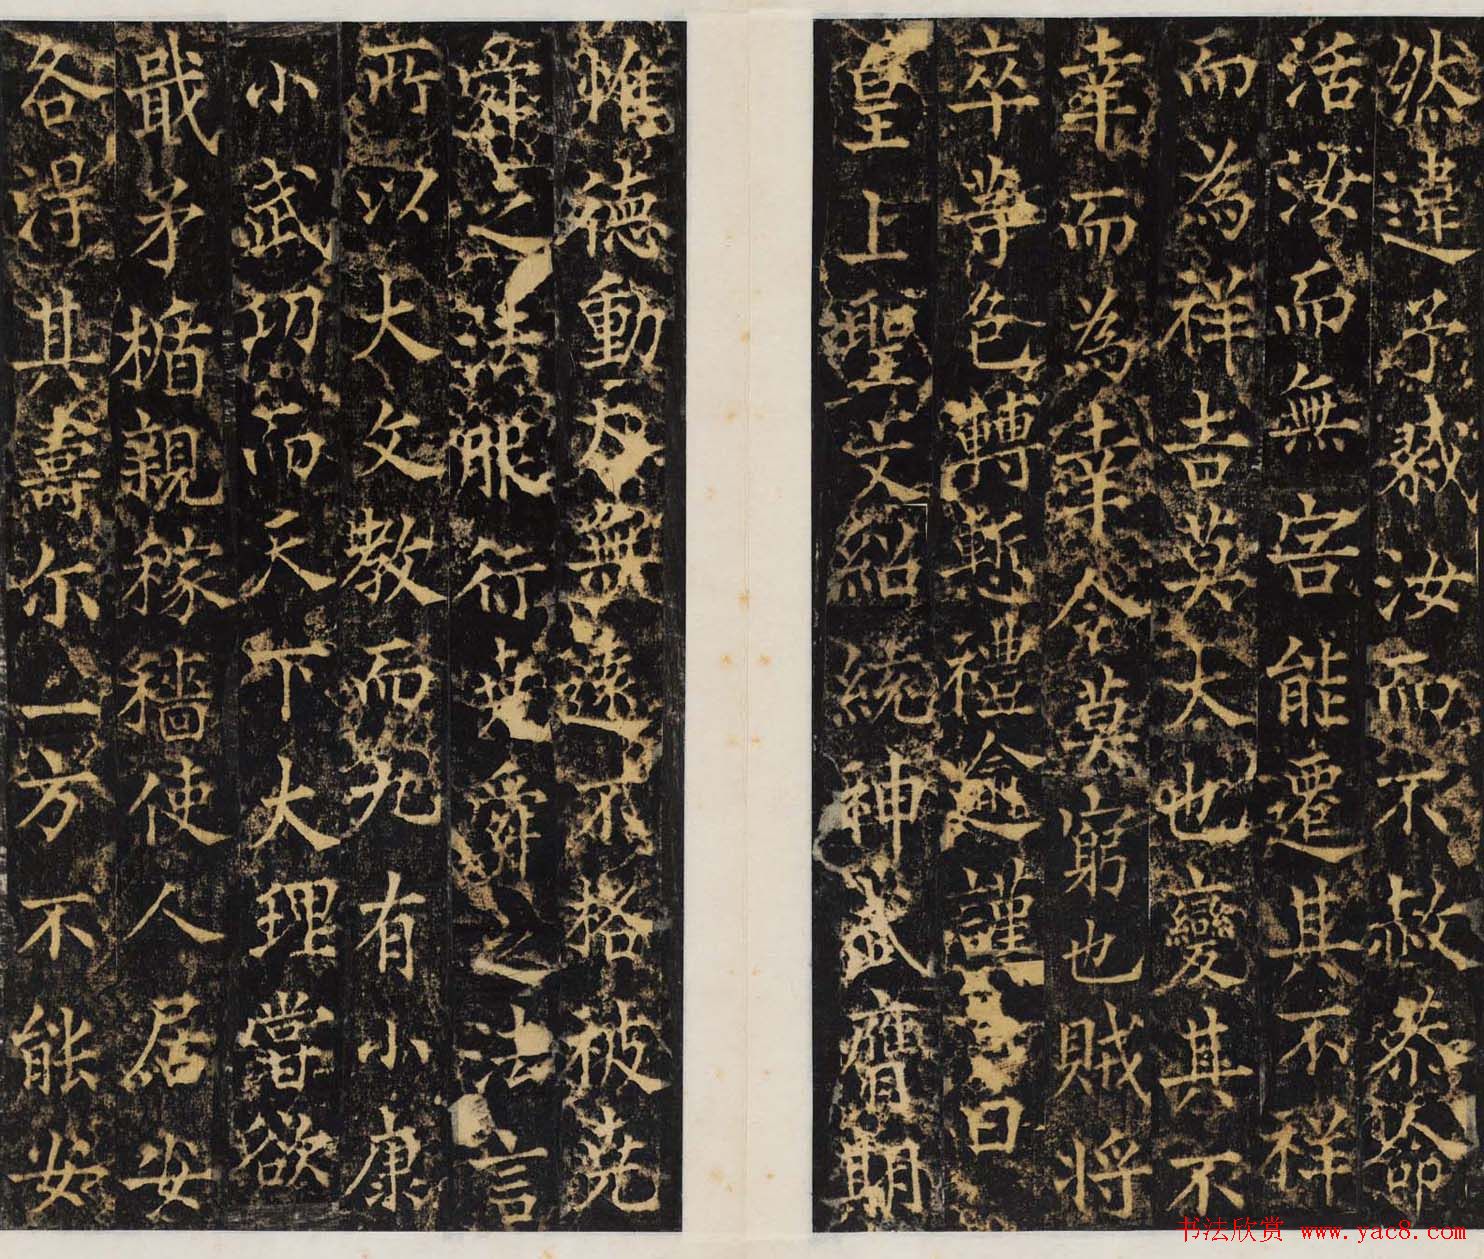 然違予戮汝而不赦恭命
活汝而無害能遷其不祥
而為祥吉莫大也變其不
幸而為幸令莫窮也賊將
卒等色轉慙禮逾謹曰
皇上聖文紹統神武膺期
惟德動天無遠不格被堯
舜之法服行堯舜之法言
所以大文教而九有小康
小武功而天下大理當欲
戢矛楯親稼穡使人居安
各得其壽尒一方不能安
书法欣赏 www.yac8.com